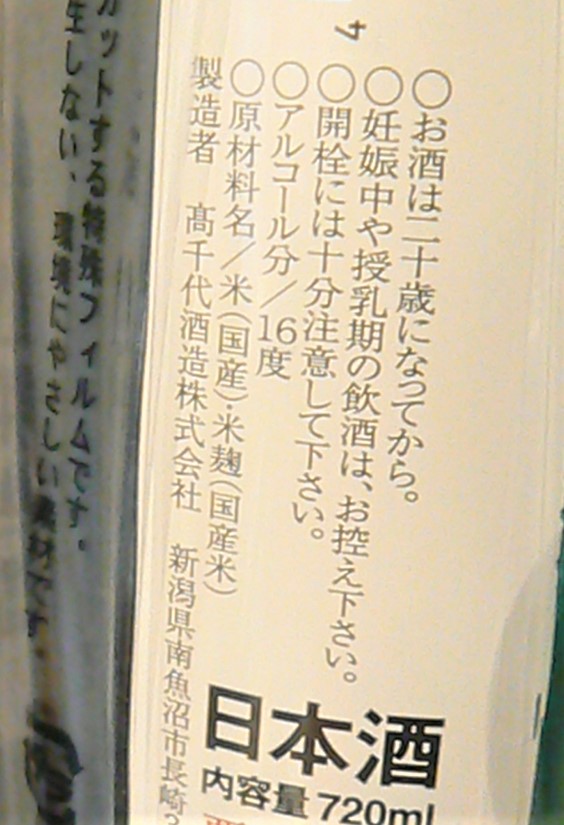 ○お酒は二十歳になってから。
○妊娠中や授乳期の飲酒は、お控え下さい。
○開栓には十分注意して下さい。
○アルコール分／16度
○原材料名／米(国産)・米麹(国産米)
製造者 髙千代酒造株式会社 新潟県南魚沼市長崎3
日本酒
内容量 720ml
カットする特殊フィルムです。
生しない、環境にやさしい素材です。